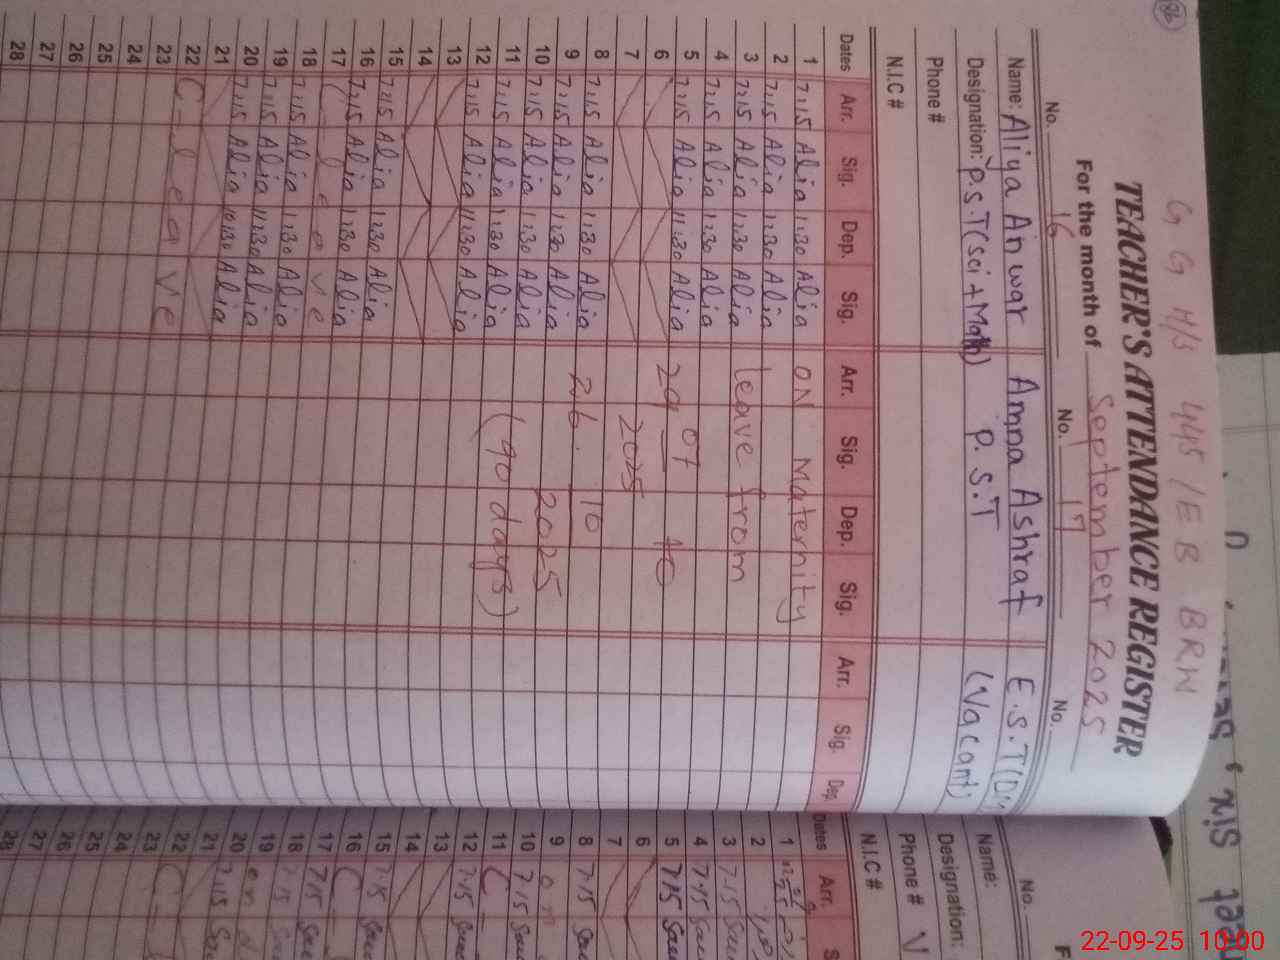 G G H/S 445/EB BRW
TEACHER'S ATTENDANCE REGISTER
For the month of September 2025
No. 16 No. 17 No.
Name: Aliya Anwar Amna Ashraf E.S.T
Designation: P.S.T(Sci+Math) P.S.T (Vacant)
Phone #
N.I.C #
Dates Arr. Sig. Dep. Sig. Arr. Sig. Dep. Sig. Arr. Sig. Dep.
1 7:15 Alia 11:30 Alia ON Maternity
2 7:15 Alia 11:30 Alia
3 7:15 Alia 11:30 Alia leave from
4 7:15 Alia 11:30 Alia
5 7:15 Alia 11:30 Alia 29 07 to
6
7 2025
8 7:15 Alia 11:30 Alia 26. 10
9 7:15 Alia 11:30 Alia
10 7:15 Alia 11:30 Alia 2025
11 7:15 Alia 11:30 Alia (90 days)
12 7:15 Alia 11:30 Alia
13
14
15 7:15 Alia 11:30 Alia
16 7:15 Alia 11:30 Alia
17 C-leave
18 7:15 Alia 11:30 Alia
19 7:15 Alia 11:30 Alia
20 7:15 Alia 11:30 Alia
21
22 C-leave
23
24
25
26
27
28
No.
Name:
Designation:
Phone #
N.I.C #
Dates Arr.
1
2
3 7:15
4 7:15
5 7:15
6
7
8 7:15
9
10 7:15
11
12 7:15
13
14
15 7:15
16
17 7:15
18 7:15
19
20
21 7:15
22
23
24
25
26
27
28
22-09-25 10:00